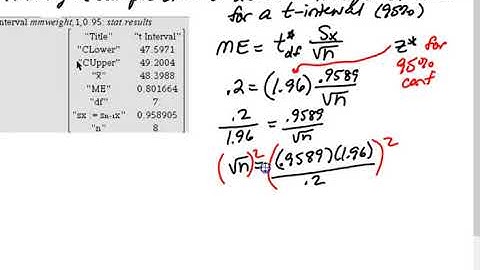 for a t-interval (95%)
interval mmweight,1,0.95: stat.results
"Title" "t Interval"
"CLower" 47.5971
"CUpper" 49.2004
"x̄" 48.3988
"ME" 0.801664
"df" 7
"sx := sn-1x" 0.958905
"n" 8
ME = t*df Sx/√n
z* for 95% conf
.2 = (1.96) .9589/√n
.2/1.96 = .9589/√n
(√n)² = ((.9589)(1.96)/.2)²